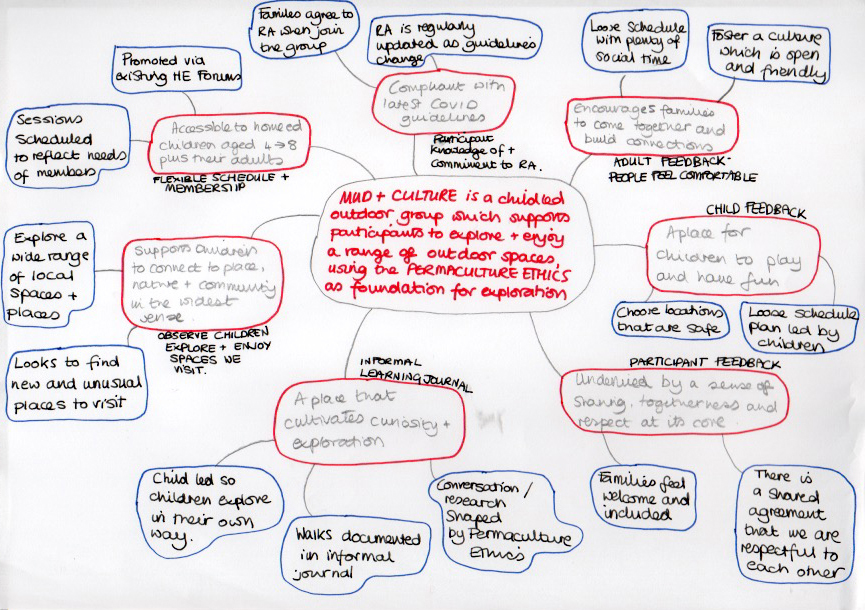 Families agree to
RA when join
the group
RA is regularly
updated as guidelines
change
Loose schedule
with plenty of
social time
Foster a culture
which is open
and friendly
Promoted via
existing HE Forums
Compliant with
latest COVID
guidelines
Participant
knowledge of +
Commiment to RA.
Encourages families
to come together and
build connections
ADULT FEEDBACK-
PEOPLE FEEL COMFORTABLE
Sessions
Scheduled
to reflect needs
of members
Accessible to home ed
children aged 4→8
plus their adults
FLEXIBLE SCHEDULE +
MEMBERSHIP
MUD + CULTURE is a child led
outdoor group which supports
participants to explore + enjoy
a range of outdoor spaces,
using the PERMACULTURE ETHICS
as foundation for exploration
CHILD FEEDBACK
A place for
children to play
and have fun
Choose locations
that are safe
Loose schedule
plan led by
children
Explore a
wide range
of local
spaces +
places
Supports children
to connect to place,
nature + community
in the widest
sense.
OBSERVE CHILDREN
EXPLORE + ENJOY
SPACES WE
VISIT.
Looks to find
new and unusual
places to visit
INFORMAL
LEARNING JOURNAL
A place that
cultivates curiosity +
exploration
PARTICIPANT FEEDBACK
by a sense of
sharing, togetherness and
respect at its core.
Child led so
children explore
in their own
way.
Walks documented
in informal
journal
Conversation/
research
Shaped
by Permaculture
Ethics
Families feel
welcome and
included
There is
a shared
agreement
that we are
respectful to
each other